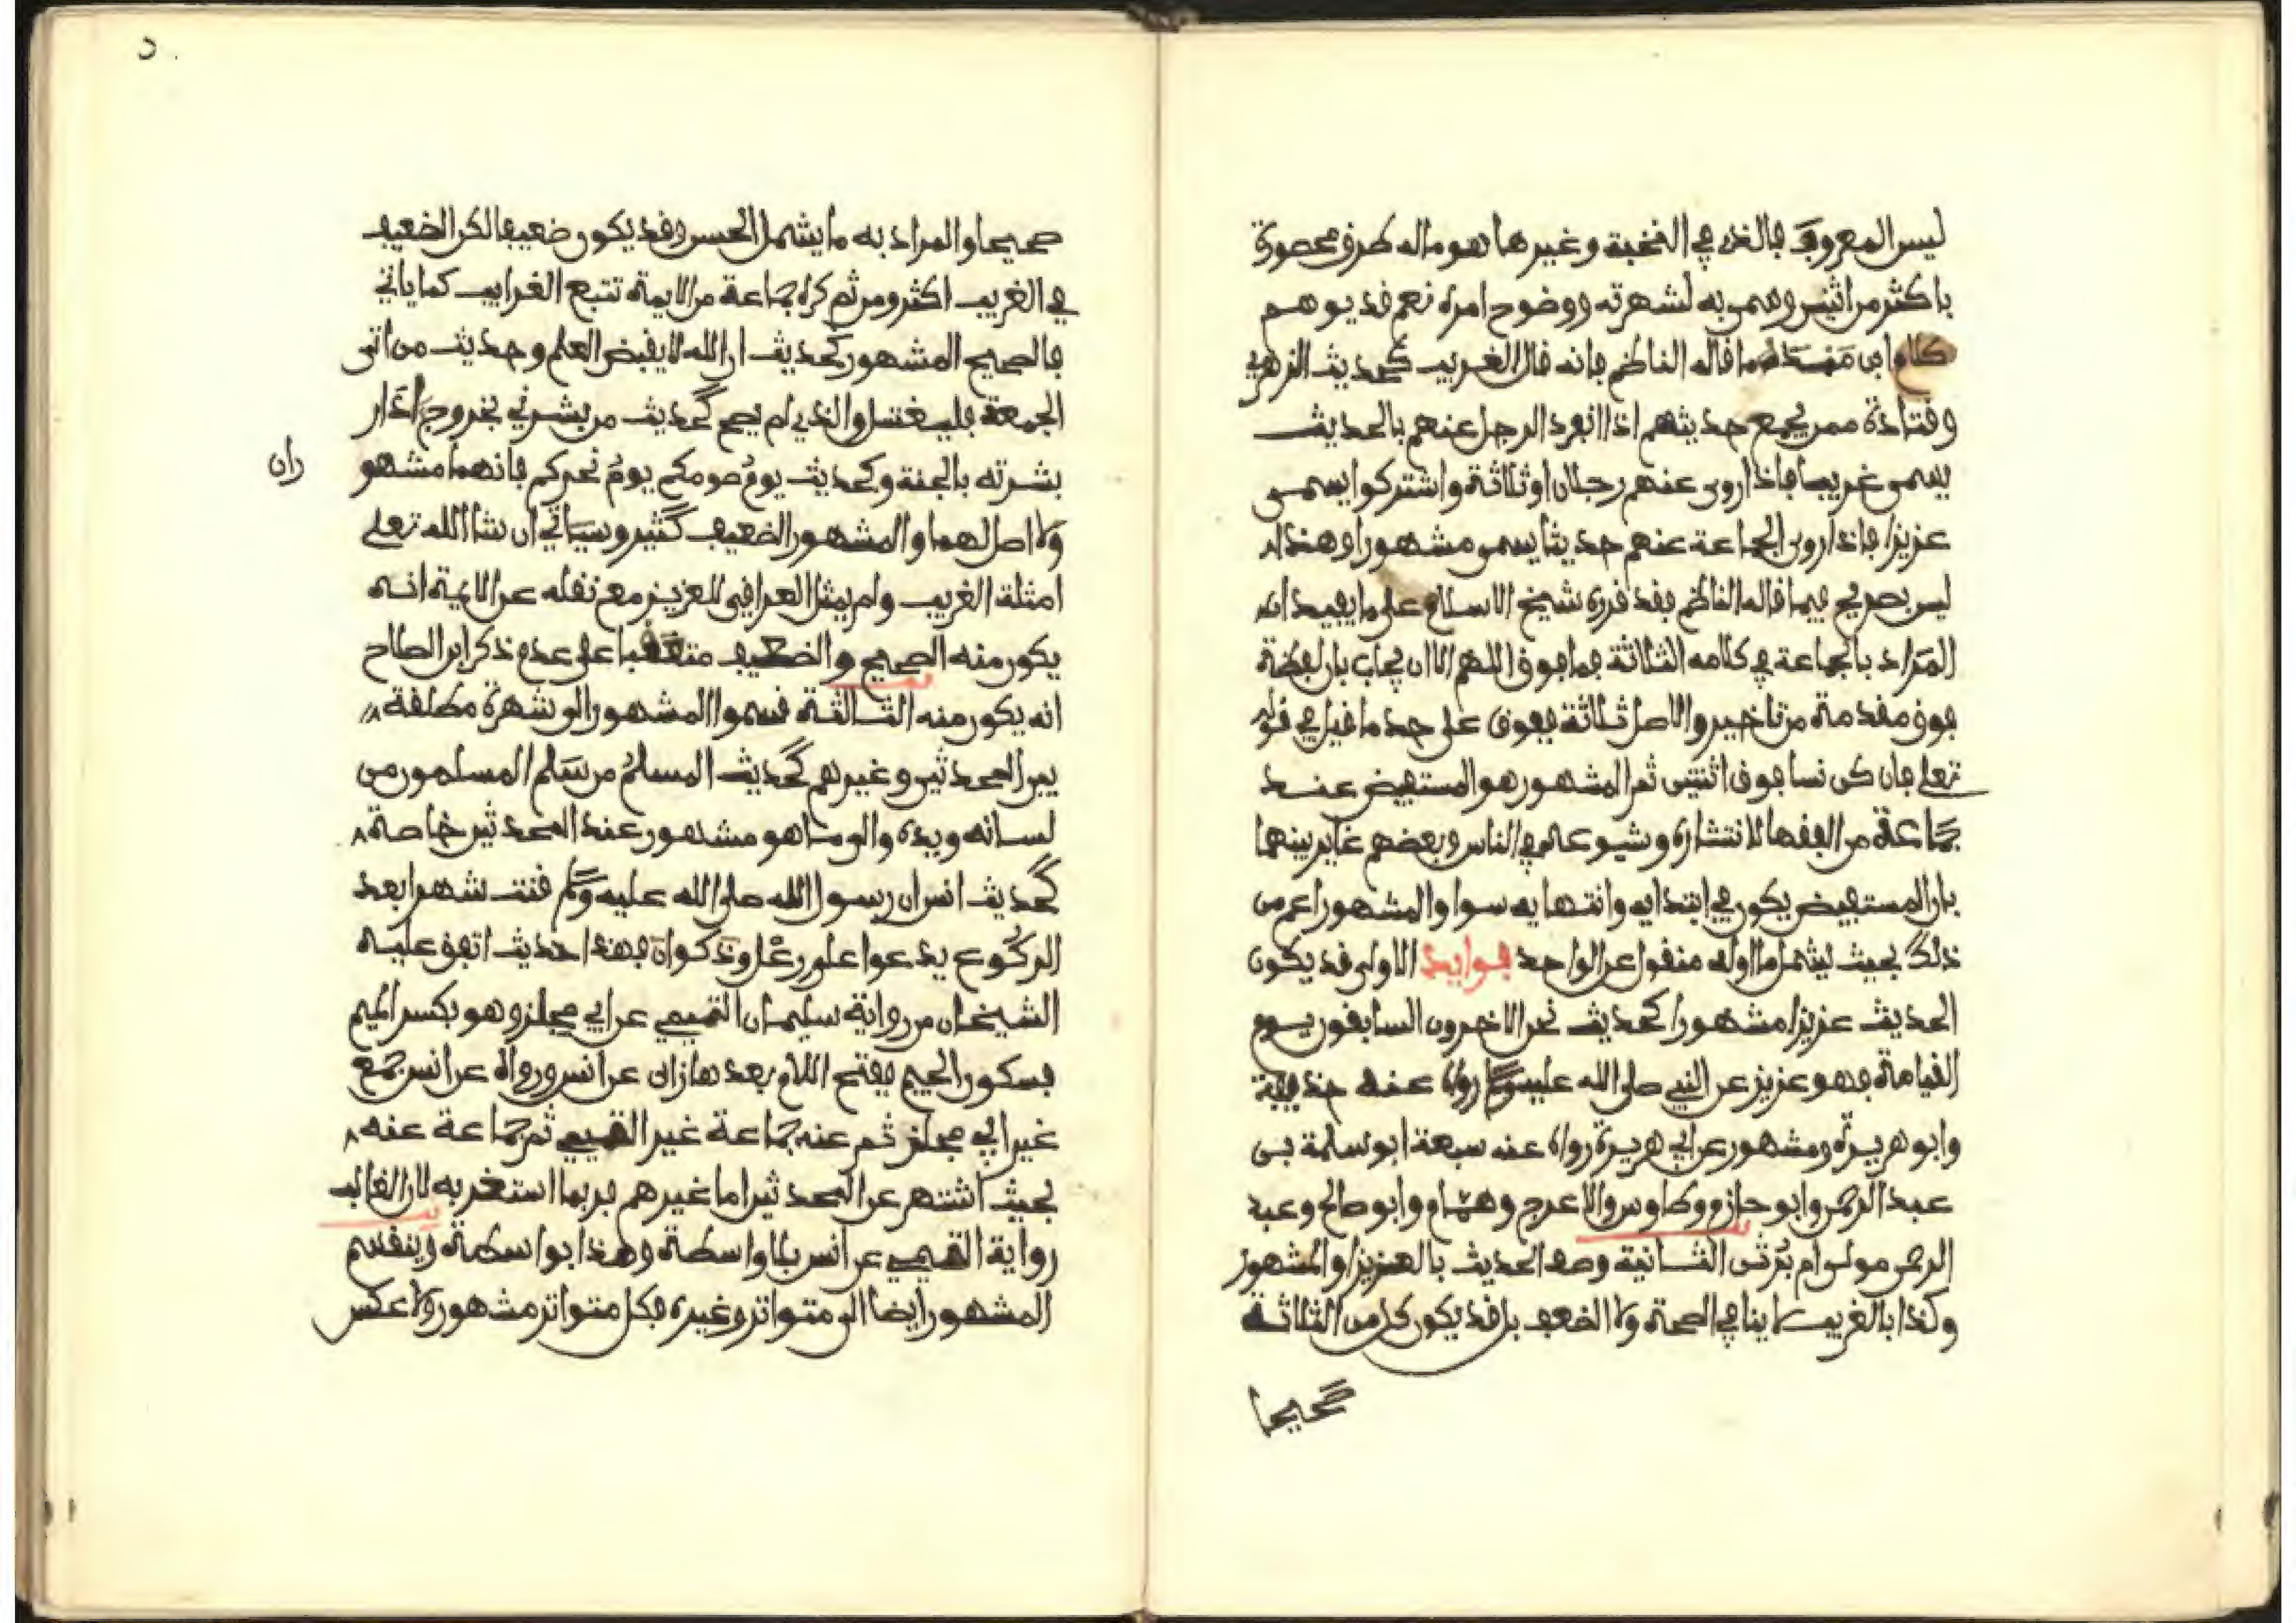 ليس المعروف فالذي في النخبة وغيرها هو ماله طرق محصورة
باكثر من اثنين وسمي به لشهرته ووضوح امره نعم قد يوهم
كلام ابن منده ما قاله الناظم فانه قال الغريب كحديث الزهري
وقتادة ممن يجمع حديثهم اذا انفرد الرجل عنهم بالحديث
يسمى غريبا فاذا روى عنهم رجلان او ثلاثة واشتركوا يسمى
عزيزا فاذا روى الجماعة عنهم حديثا يسمى مشهورا وهذا
ليس بصريح فيما قاله الناظم فقد قرره شيخ الاسلام على ما يفيد ان
المراد بالجماعة في كلامه الثلاثة فما فوق اللهم الا ان يجاب بان لفظة
فوق مقدمة من تاخير والاصل ثلاثة ففوق على حد ما قيل في قوله
تعلى فان كن نسا فوق اثنتين ثم المشهور هو المستفيض عند
جماعة من الفقها لانتشاره وشيوعه في الناس وبعضهم غاير بينهما
بان المستفيض يكون في ابتدايه وانتهايه سوا والمشهور اعم من
ذلك بحيث يشمل ما اوله منقول عن الواحد فوايد الاولى قد يكون
الحديث عزيزا مشهورا كحديث نحن الاخرون السابقون يوم
القيامة فهو عزيز عن النبي صلى الله عليه وسلم رواه عنه حذيفة
وابو هريرة ومشهور عن ابي هريرة رواه عنه سبعة ابو سلمة بن
عبد الرحمن وابو حازم وطاوس والاعرج وهمام وابو صالح وعبد
الرحمن مولى ام برثن الثانية وصف الحديث بالعزيز او المشهور
وكذا بالغريب لا ينافي الصحة ولا الضعف بل قد يكون كل من الثلاثة
صحيحا
صحيحا والمراد به ما يشمل الحسن وقد يكون ضعيفا لكن الضعيف
في الغريب اكثر ومن ثم كره جماعة من الايمة تتبع الغرايب كما ياتي
فالصحيح المشهور كحديث ان الله لا يقبض العلم وحديث من اتى
الجمعة فليغتسل والذي لم يصح كحديث من بشرني بخروج اذار
بشرته بالجنة وكحديث يوم صومكم يوم نحركم فانهما مشهو
ران
ولا اصل لهما والمشهور الضعيف كثير وسياتي ان شا الله تعلى
امثلة الغريب ولم يمثل العراقي للعزيز مع نقله عن الايمة انه
يكون منه الصحيح والضعيف متعقبا على عدم ذكر ابن الصلاح
انه يكون منه الثالثة قسموا المشهور الى شهرة مطلقة
بين المحدثين وغيرهم كحديث المسلم من سلم المسلمون من
لسانه ويده والى ما هو مشهور عند المحدثين خاصة
كحديث انس ان رسول الله صلى الله عليه وسلم قنت شهرا بعد
الركوع يدعوا على رعل وذكوان فهذا حديث اتفق عليه
الشيخان من رواية سليمان التيمي عن ابي مجلز وهو بكسر الميم
فسكون الجيم ففتح اللام بعدها زاي عن انس ورواه عن انس جمع
غير ابي مجلز ثم عنه جماعة غير التيمي ثم جماعة عنه
بحيث اشتهر عن المحدثين اما غيرهم فربما استغربه لان الغالب
رواية التيمي عن انس بلا واسطة وهذا بواسطة وينقسم
المشهور ايضا الى متواتر وغيره فكل متواتر مشهور ولا عكس